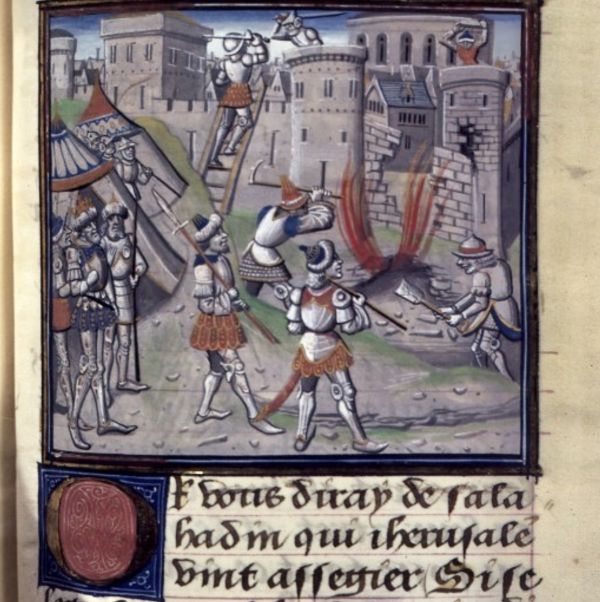 Or vous diray de sala
hadin qui iherusale
vint assegier Si se